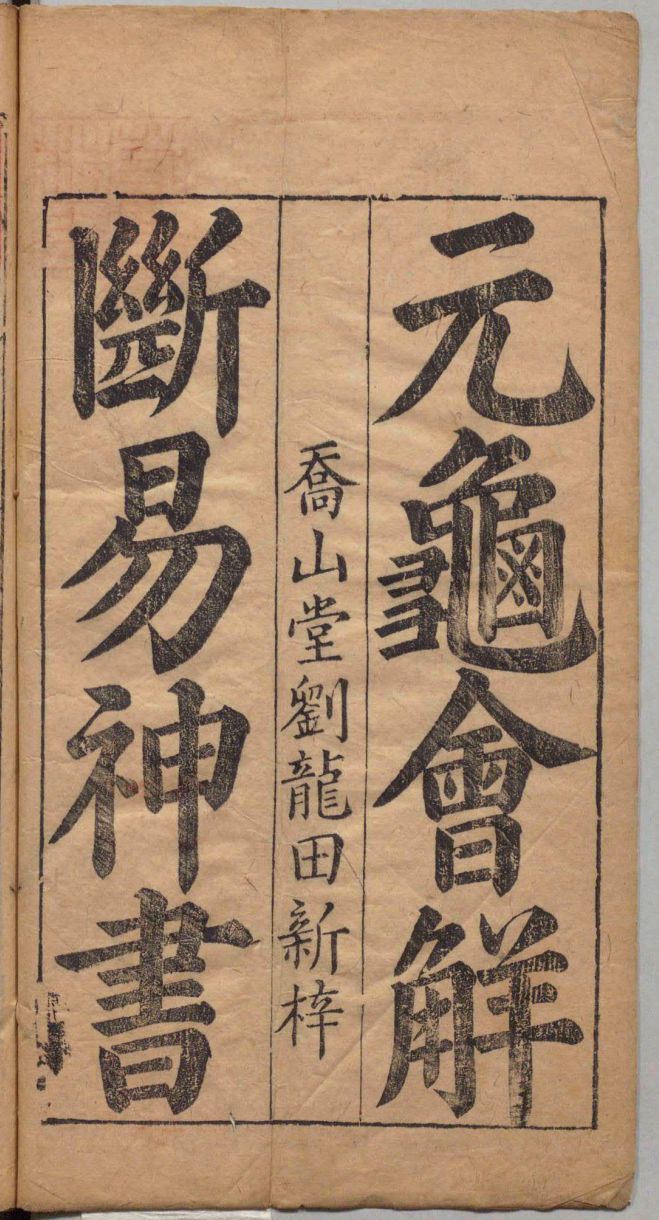 元龜會觧
喬山堂劉龍田新梓
斷易神書